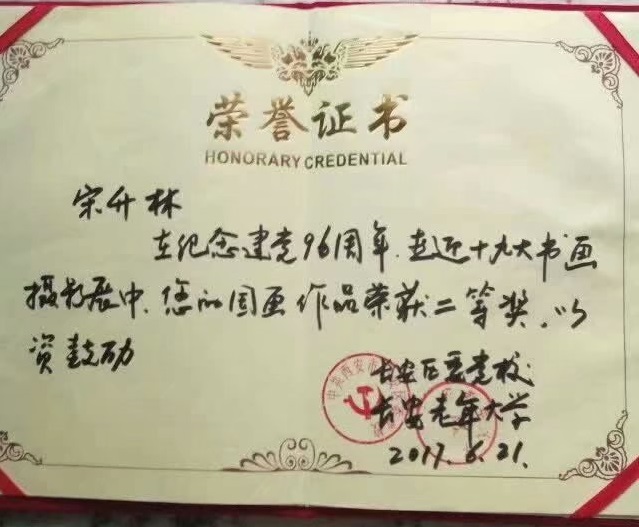 荣誉证书
HONORARY CREDENTIAL
宋升林
在纪念建党96周年.走近十九大书画
摄影展中.您的国画作品荣获二等奖.以
资鼓励
长安区委党校
长安老年大学
2017.6.21.
中共西安市